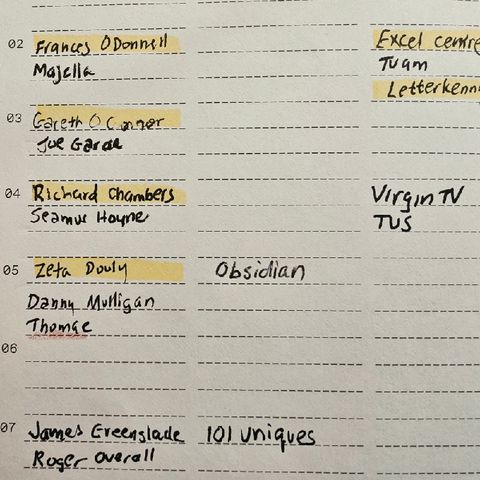 02 Frances O Donnell Excel centre
Majella Tuam
Letterkenn
03 Gareth O Connor
Joe
04 Richard Chambers Virgin TV
Seamus Hoyne TUS
05 Zeta Douly Obsidian
Danny Mulligan
Thomae
06
07 James Greenslade 101 Uniques
Roger Overall